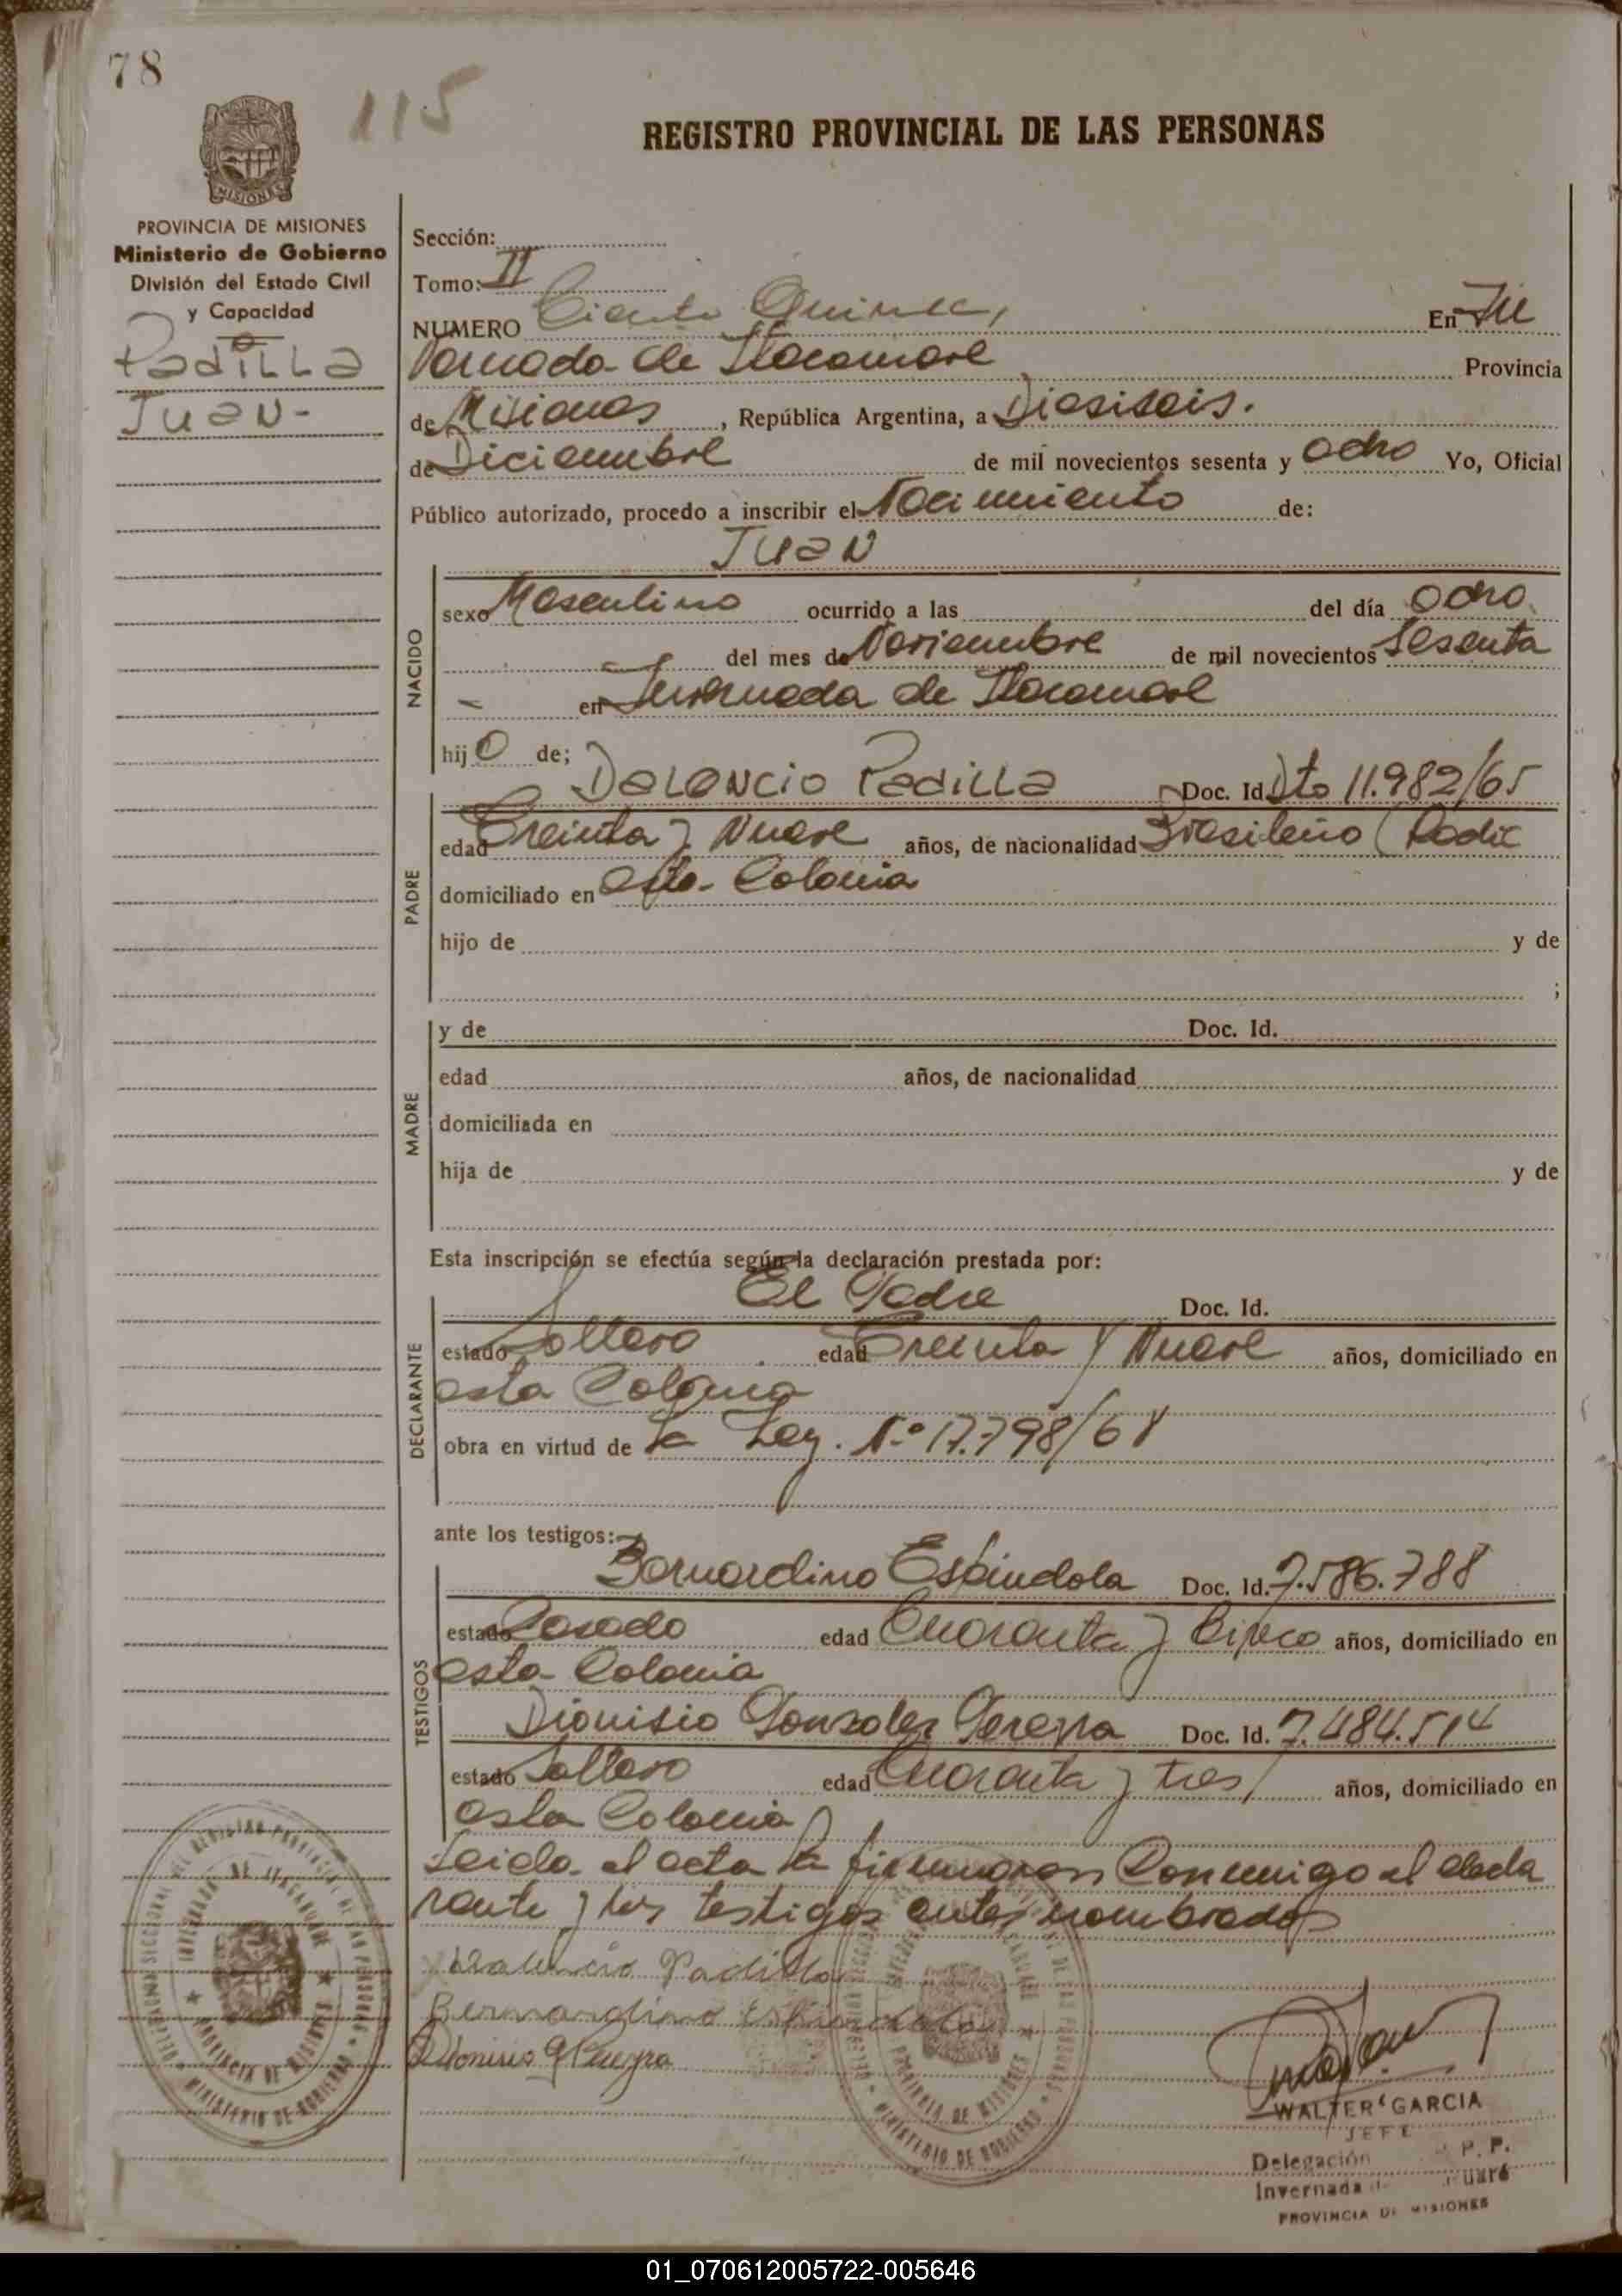 78
115
REGISTRO PROVINCIAL DE LAS PERSONAS
MISIONES
PROVINCIA DE MISIONES
Ministerio de Gobierno
División del Estado Civil
y Capacidad
Padilla
Juan-
Sección:
Tomo: II
NUMERO Ciento Quince, En
de Itacaruaré Provincia
de Misiones, República Argentina, a Diesiseis.
de Diciembre de mil novecientos sesenta y ocho Yo, Oficial
Público autorizado, procedo a inscribir el Nacimiento de:
Juan
NACIDO
sexo Masculino ocurrido a las del día ocho
del mes de Noviembre de mil novecientos Sesenta
en de Itacaruaré
hijo de;
PADRE
Padilla Doc. Id. Dto 11.982/65
edad Treinta y Nueve años, de nacionalidad Brasileño (Radic
domiciliado en esta Colonia
hijo de y de
;
MADRE
y de Doc. Id.
edad años, de nacionalidad
domiciliada en
hija de y de
Esta inscripción se efectúa según la declaración prestada por:
DECLARANTE
El Padre Doc. Id.
estado Soltero edad Treinta y Nueve años, domiciliado en
esta Colonia
obra en virtud de la Ley. Nº 17.798/68
ante los testigos:
TESTIGOS
Bernardino Espíndola Doc. Id. 7.586.788
estado Casado edad Cuarenta y Cinco años, domiciliado en
esta Colonia
Dionisio Gonzalez Doc. Id. 7.484.514
estado Soltero edad Cuarenta y tres años, domiciliado en
esta Colonia
Leida el acta la firmaron Conmigo el decla
rante y los testigos antes nombrados
Padilla
Bernardino
WALTER GARCIA
JEFE
Delegación P. P.
Invernada
PROVINCIA DE MISIONES
01_070612005722-005646